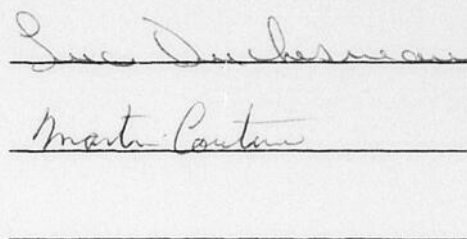 Luc Duchesneau
Martin Couture